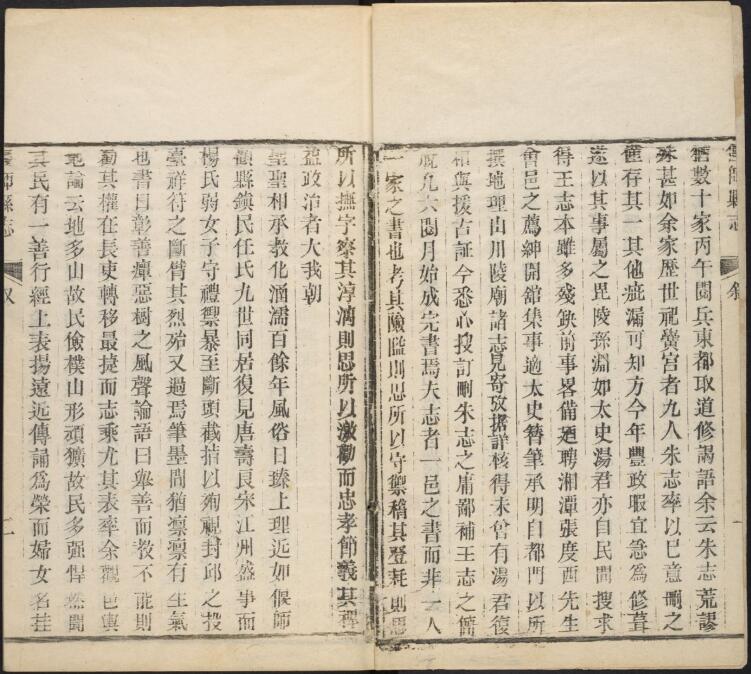 偃師縣志
叙
一
舊數十家丙午閱兵東都取道修謁語余云朱志荒謬
殊甚如余家歷世祀黌宮者九人朱志率以巳意刪之
僅存其一其他疵漏可知方今年豐政暇宜急爲修葺
遂以其事屬之毘陵孫淵如太史湯君亦自民間搜求
得王志本雖多殘缺前事畧備廼聘湘潭張度西先生
會邑之薦紳開舘集事適太史簪筆承明自都門以所
撰地理山川陵廟諸志見寄攷據詳核得未曾有湯君復
相與援古証今悉心搜訂刪朱志之庸鄙補王志之簡
既九六閱月始成完書焉夫志者一邑之書而非一人
一家之書也考其險隘則思所以守禦稽其登耗則思
所以撫字察其淳漓則思所以激勸而忠孝節義其裨
益政治者大我朝
聖聖相承教化涵濡百餘年風俗日臻上理近如偃師
顧縣鎮民任氏九世同居復見唐壽良宋江州盛事而
楊氏弱女子守禮禦暴至斷頭截指以殉視封邱之投
臺祥符之斷臂其烈殆又過焉筆墨間猶凛凛有生氣
也書曰彰善癉惡樹之風聲論語曰舉善而教不能則
勸其權在長吏轉移最捷而志乘尤其表率余觀邑輿
地論云地多山故民儉樸山形頑獷故民多强悍然聞
其民有一善行經上表揚遠近傳誦爲榮而婦女名挂
偃師縣志
叙
二